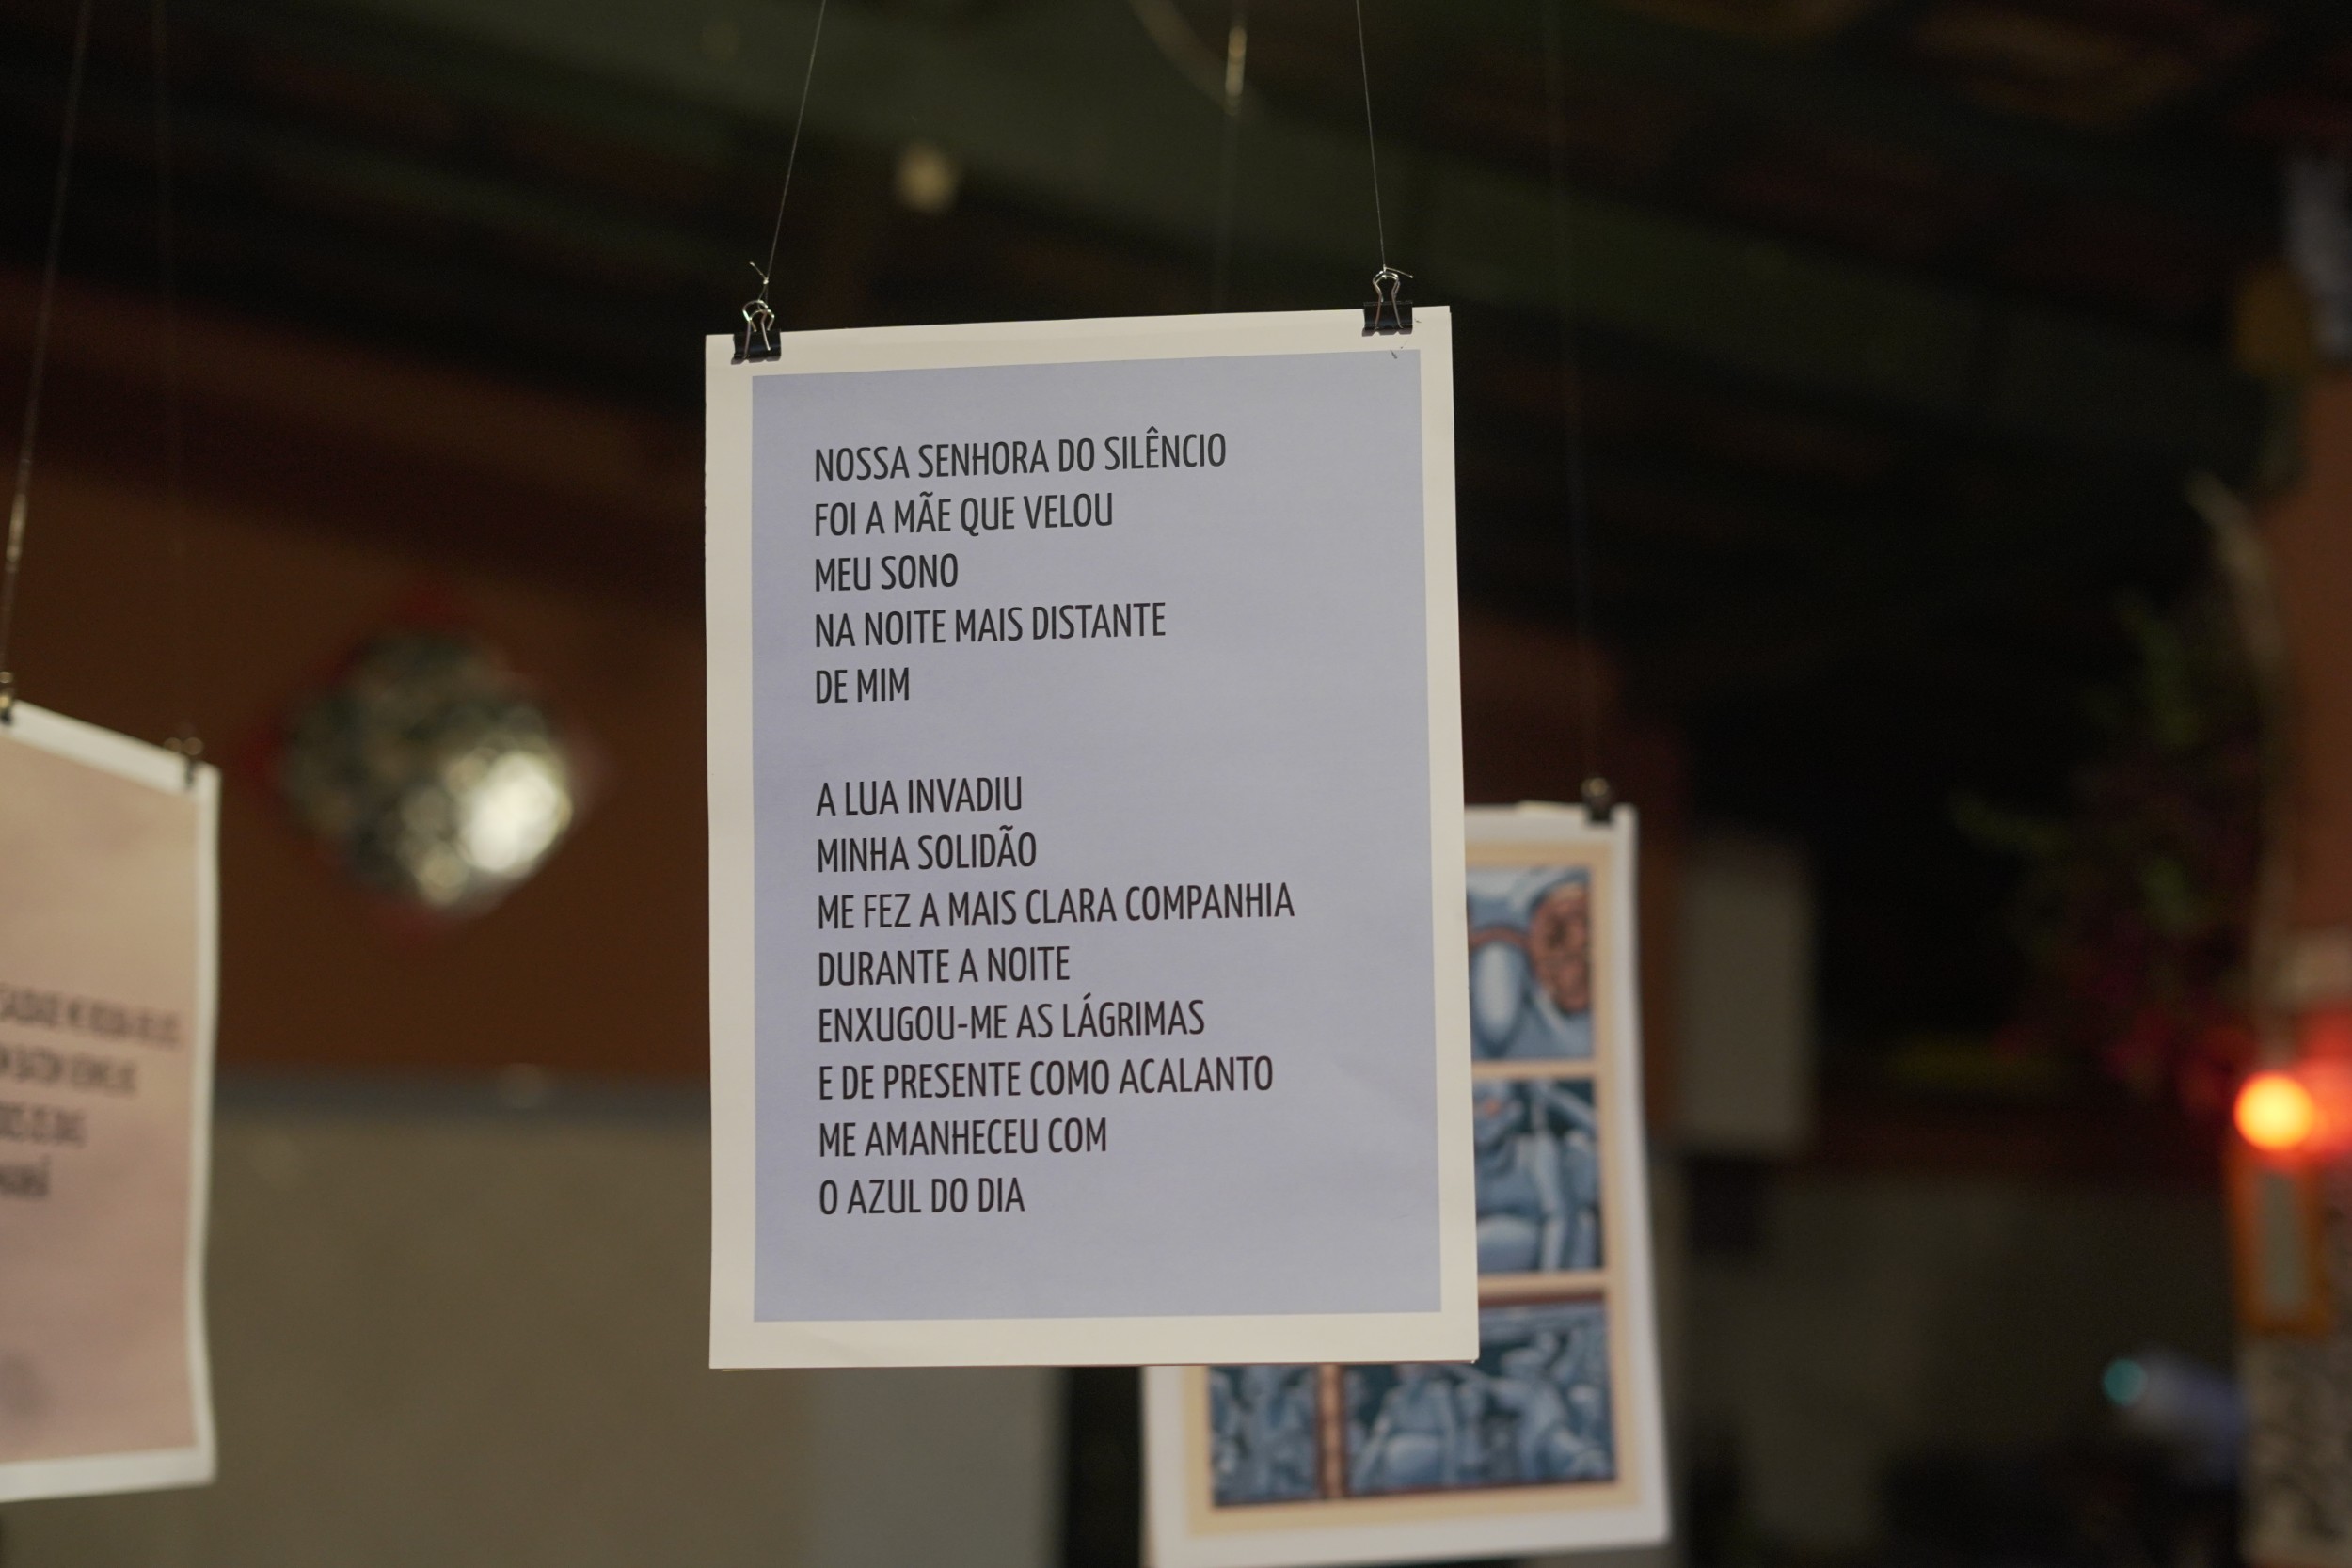 NOSSA SENHORA DO SILÊNCIO
FOI A MÃE QUE VELOU
MEU SONO
NA NOITE MAIS DISTANTE
DE MIM
A LUA INVADIU
MINHA SOLIDÃO
ME FEZ A MAIS CLARA COMPANHIA
DURANTE A NOITE
ENXUGOU-ME AS LÁGRIMAS
E DE PRESENTE COMO ACALANTO
ME AMANHECEU COM
O AZUL DO DIA